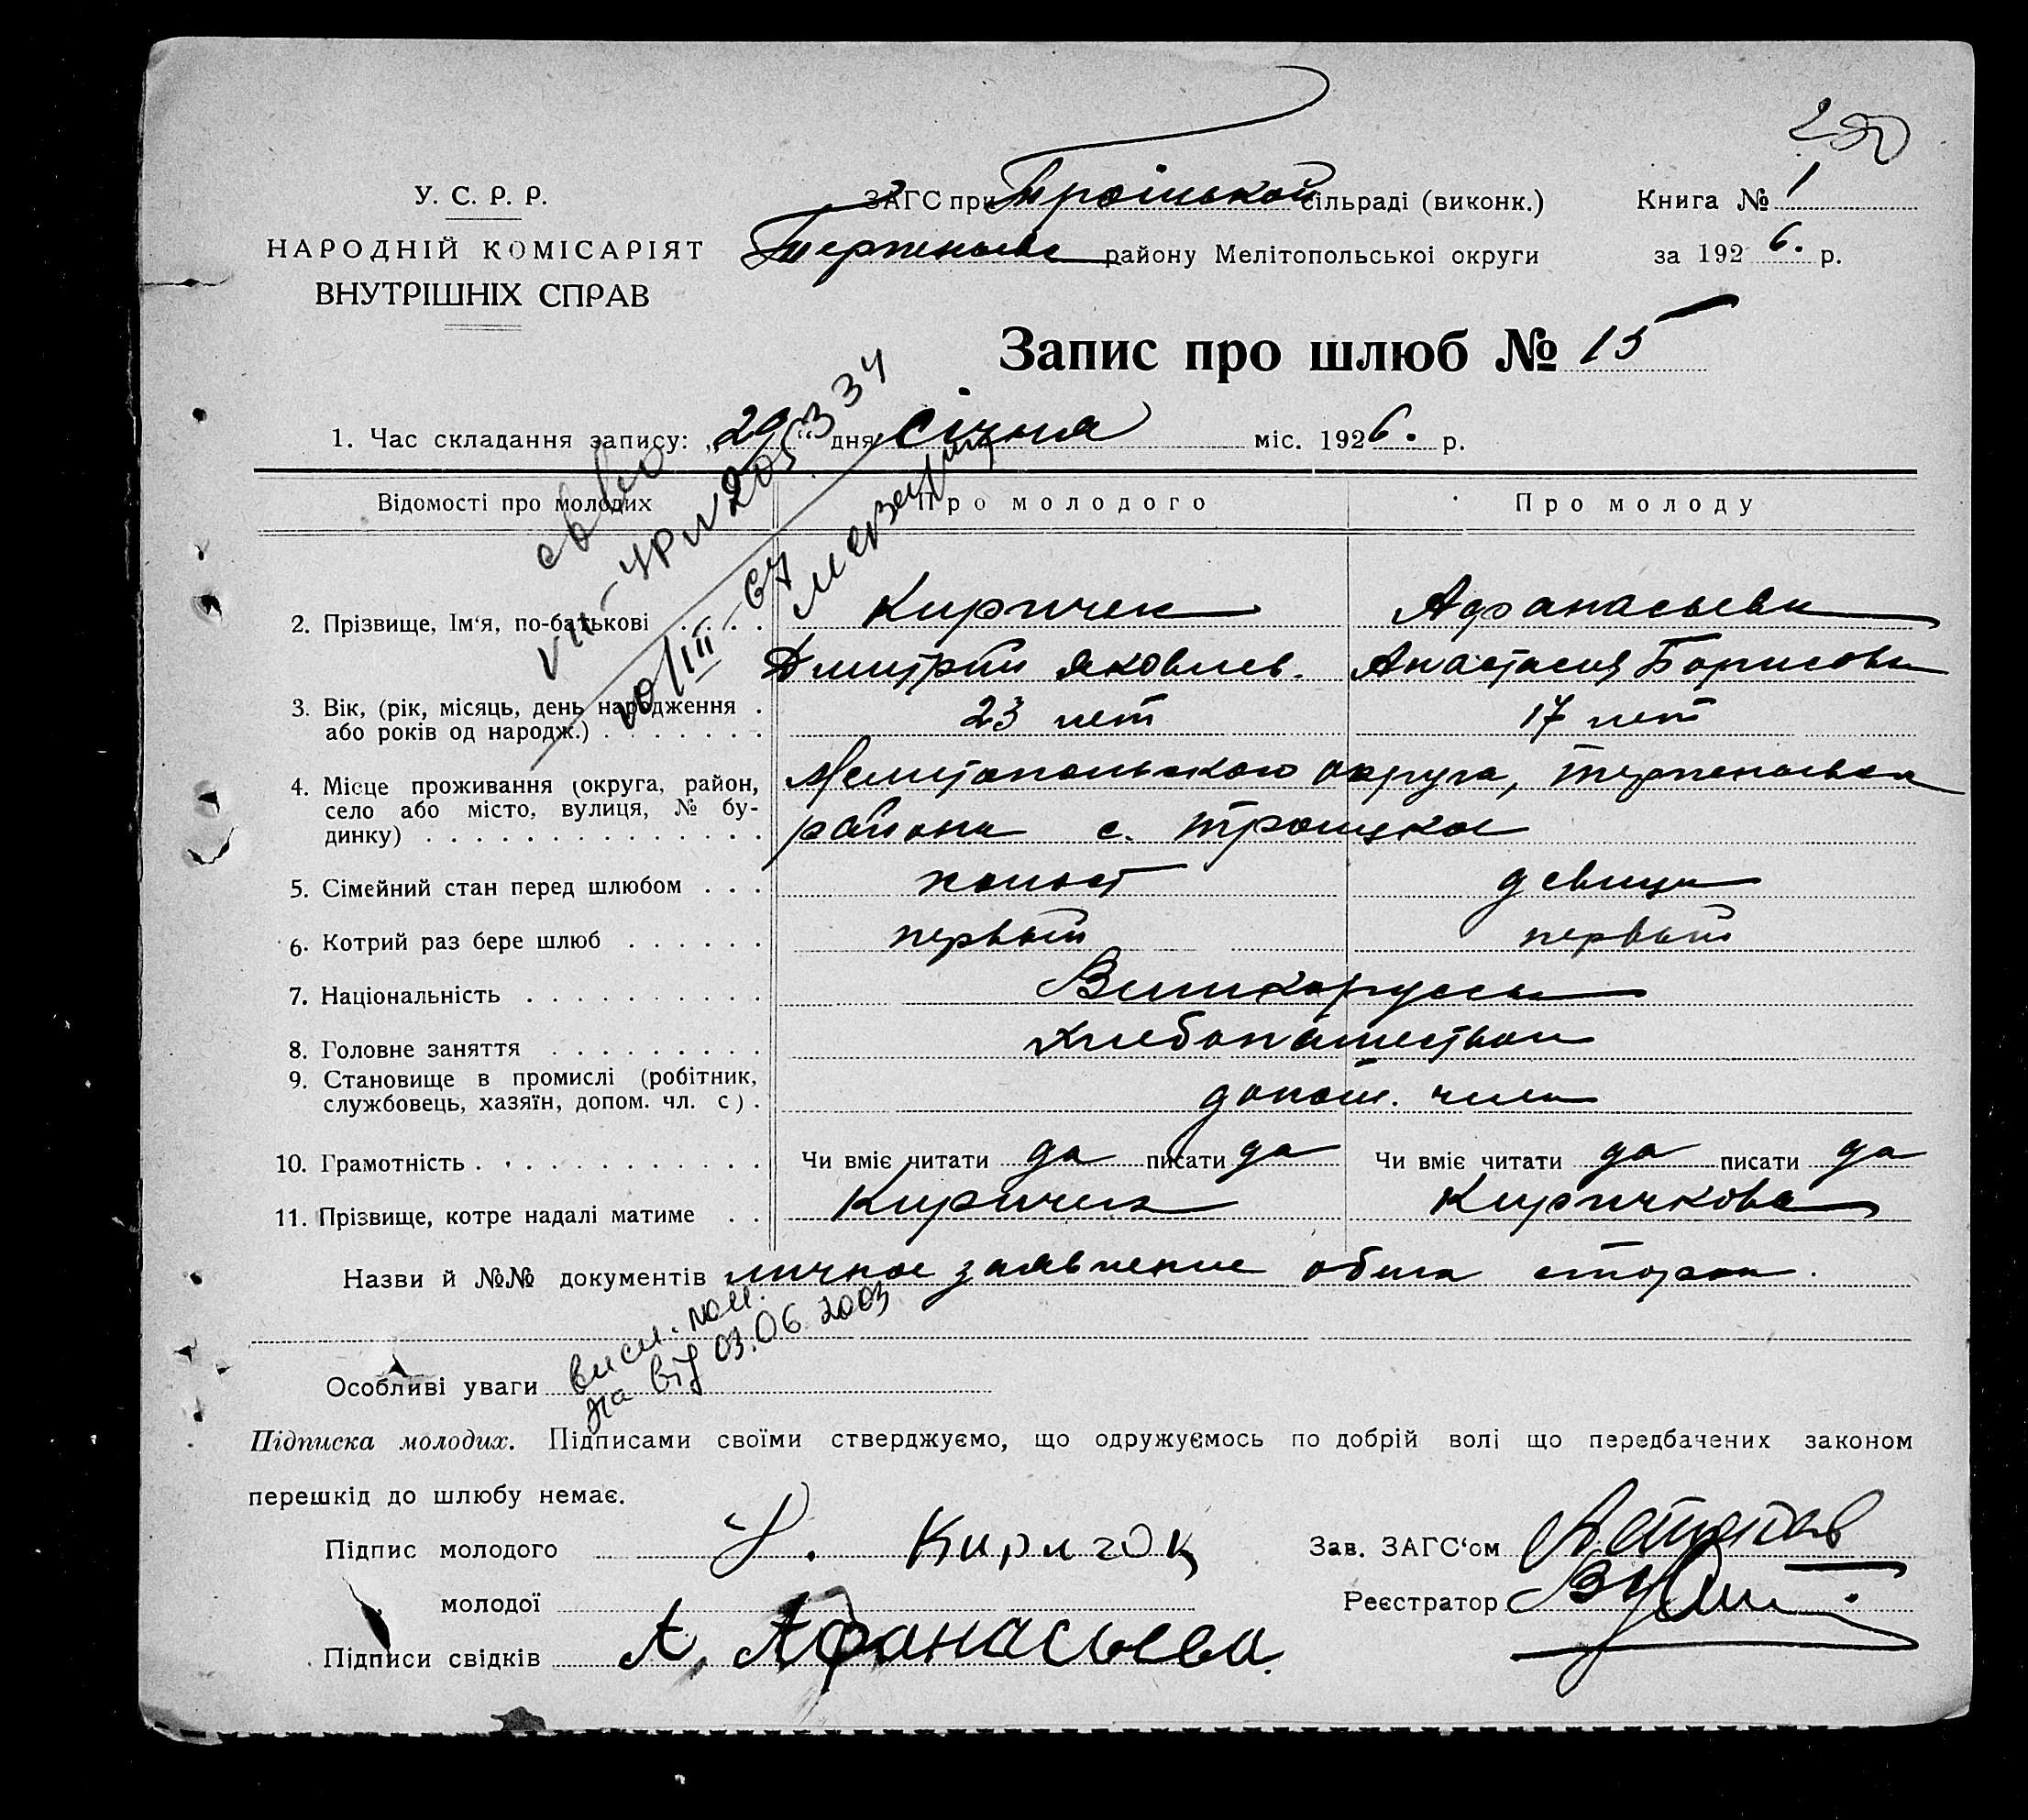 250
У. С. Р. Р.
НАРОДНІЙ КОМІСАРІЯТ
ВНУТРІШНІХ СПРАВ
ЗАГС при Троїцькой сільраді (виконк.)
району Мелітопольської округи
Книга № 1
за 1926. р.
Запис про шлюб № 15
1. Час складання запису: „29“ дня січня міс. 1926. р.
Відомості про молодих Про молодого Про молоду
св-во
VII-УРN 205334
10/III-67
2. Прізвище, Ім‘я, по-батькові . . . . Киричек Афанасьева
Дмитрий Яковлев. Анастасия Борисовн
3. Вік, (рік, місяць, день народження . 23 лет 17 лет
або років од народж.) . . . . . . .
4. Місце проживання (округа, район, Мелитопольского округа,
село або місто, вулиця, № бу-
динку) . . . . . . . . . . . . . . района с. Троицкое
5. Сімейний стан перед шлюбом . . . холост девица
6. Котрий раз бере шлюб . . . . . . первый первый
7. Національність . . . . . . . . . . Великоруссы
8. Головне заняття . . . . . . . . . хлебопашеством
9. Становище в промислі (робітник,
службовець, хазяїн, допом. чл. с) . члены
10. Грамотність . . . . . . . . . . . . Чи вміє читати да писати да Чи вміє читати да писати да
11. Прізвище, котре надалі матиме . . Киричек Киричкова
Назви й №№ документів личное заявление обеих сторон.
Особливі уваги
від 03.06.2003
Підписка молодих. Підписами своїми стверджуємо, що одружуємось по добрій волі що передбачених законом
перешкід до шлюбу немає.
Підпис молодого Киричок Зав. ЗАГС‘ом
молодої Реєстратор
Підписи свідків А. Афанасьева.